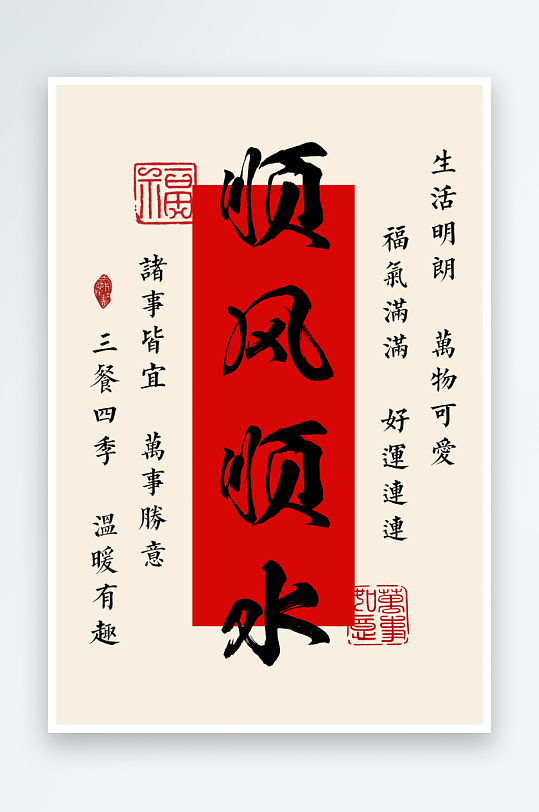 生活明朗 萬物可愛
福氣滿滿 好運連連
顺风顺水
福
萬事如意
諸事皆宜 萬事勝意
三餐四季 溫暖有趣